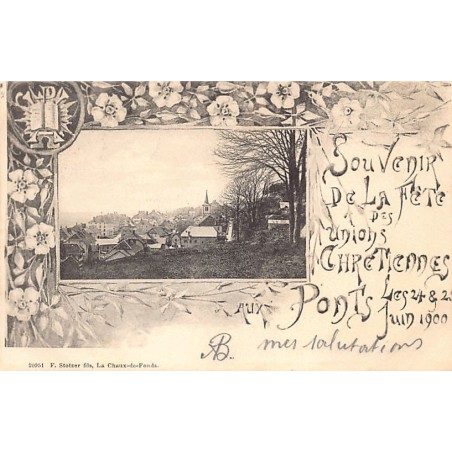 Souvenir
de la Fête
des
Unions
Chrétiennes
aux Ponts Les 24 & 25
Juin 1900
AB. mes salutations
20951 F. Stotzer fils, La Chaux-de-Fonds.